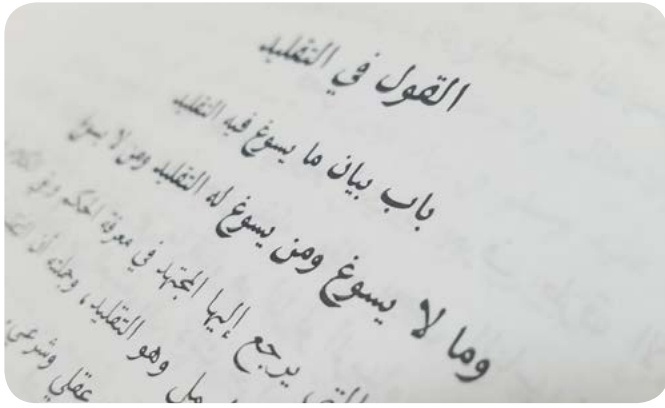 القول في التقليد
باب بيان ما يسوغ فيه التقليد
وما لا يسوغ ومن يسوغ له التقليد ومن لا يسوغ
التي يرجع إليها المجتهد في معرفة الحكم
وهو التقليد، وجملته أن
عقلي وشرعي